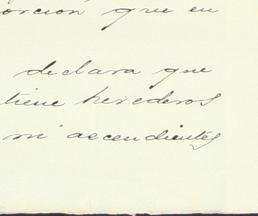 orción que en
declara que
tiene herederos
ni ascendientes